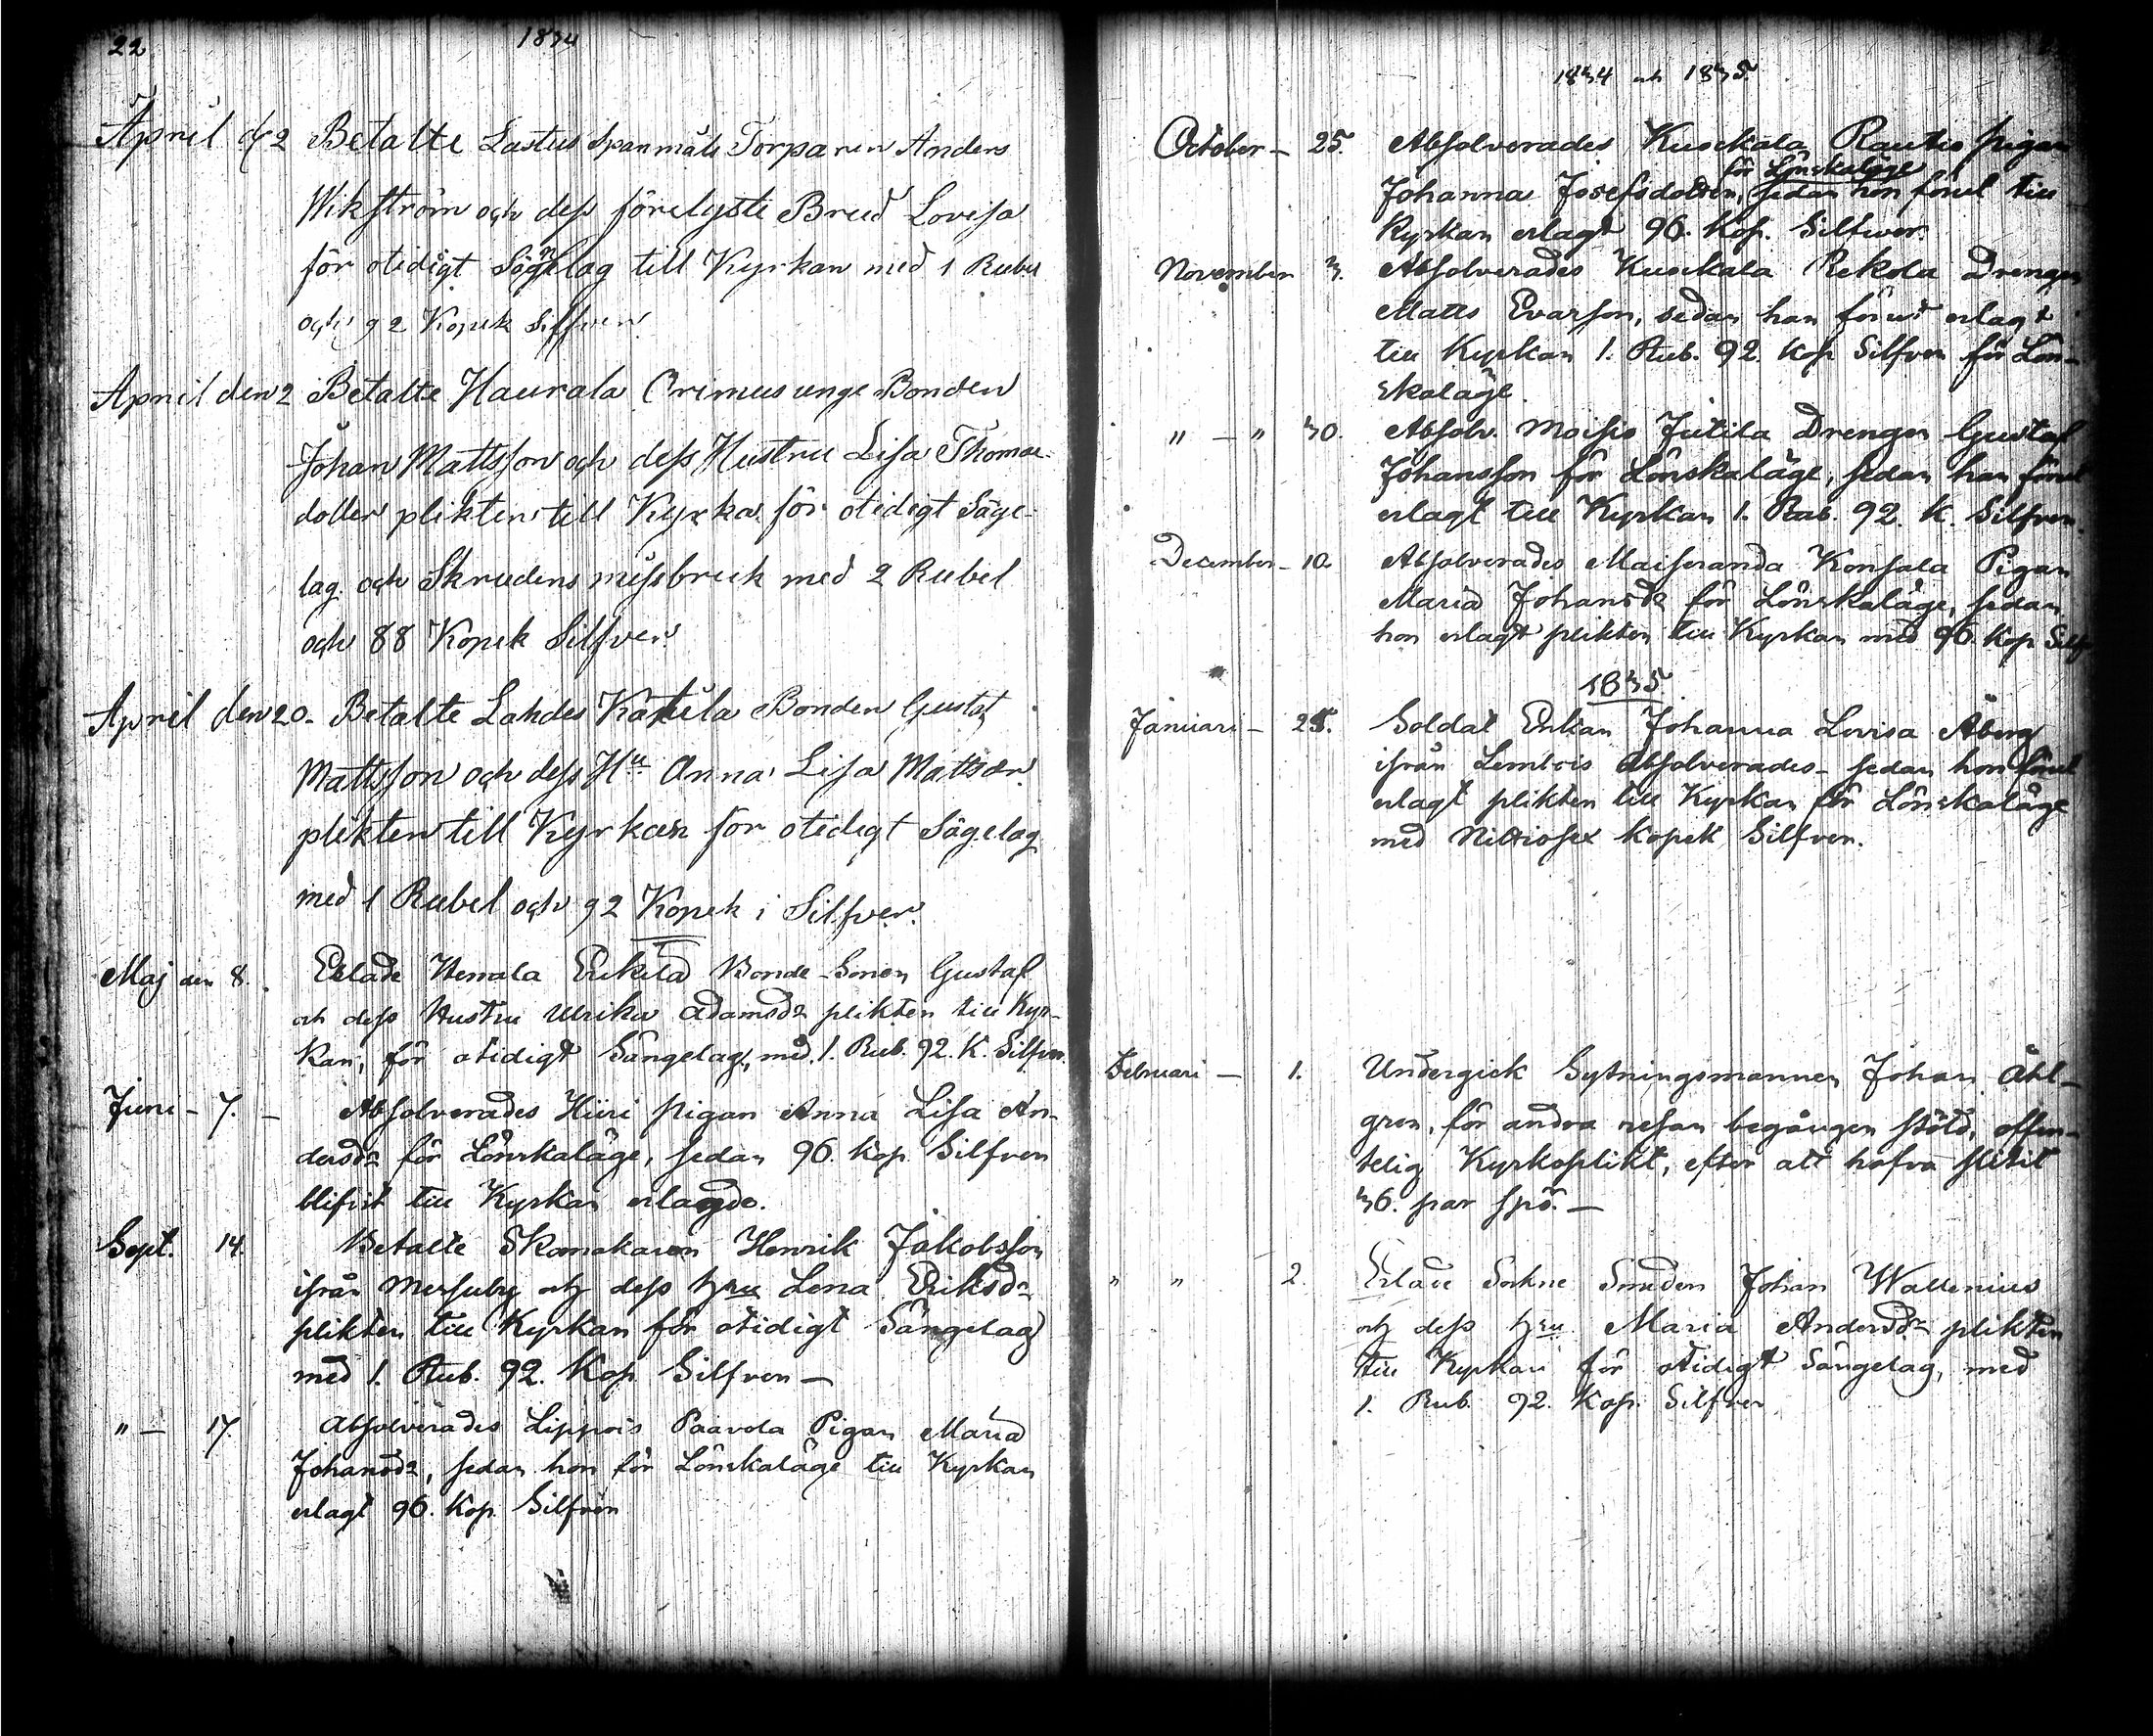 22
1834
April d 2 Betalte Lastus Spanmåls Torparen Anders
Wikström och dess förelyste Brud Lovisa
för otidigt Sägnelag till Kyrkan med 1 Rubel
och 92 Kopek Silfver
April den 2 Betalte Haurala Orimus unge Bonden
Johan Mattsson och dess Hustru Lisa Thomæ-
dotter plikten till Kyrka för otidigt Säge-
lag och Skrudens missbruk med 2 Rubel
och 88 Kopek Silfver
April den 20. Betalte Lahdes Katila Bonden Gustaf
Mattsson och dess Hu Anna Lisa Mattsdr
plikten till Kyrkan för otidigt Sägelag
med 1 Rubel och 92 Kopek i Silfver.
Maj den 8. Erlade Hemala Erikila Bonde-Sonen Gustaf
och dess Hustru Ulrika Adamsdr plikten till Kyr-
kan, för otidigt Sängelag, med 1. Rub. 92. K. Silfver.
Juni - 7. - Absolverades Hiiri pigan Anna Lisa An-
dersdr för Lönskaläge, sedan 96. Kop. Silfver
blifvit till Kyrkan erlagde.
Sept. 14. Betalte Skomakaren Henrik Jakobsson
ifrån Mersuby och dess hru Lena Eriksdr
plikten till Kyrkan för otidigt Sängelag
med 1. Rub. 92. Kop. Silfver -
" - 17. Absolverades Lippois Paavola Pigan Maria
Johansdr, sedan hon för Lönskaläge till Kyrkan
erlagt 96. Kop. Silfver
1834 och 1835
October - 25. Absolverades Kusekala Rautio pigan
för Lönskaläge
Johanna Josefsdotter, sedan hon förut till
Kyrkan erlagt 96. Kop. Silfwer.
November 3. Absolverades Kusekala Rekola Drengen
Matts Evarsson, sedan han förut erlagt
till Kyrkan 1. Rub. 92. Kop Silfver för Lön-
skaläge.
" - " 30. Absolv. Moisio Jutila Drengen Gustaf
Johansson för Lönskaläge, sedan han förut
erlagt till Kyrkan 1. Rub. 92. K. Silfver.
December - 10. Absolverades Maiseranda Konsala Pigan
Maria Johansdr för Lönskaläge, sedan
hon erlagt plikten till Kyrkan med 96. Kop Silf
1835
Januari - 25. Soldat Enkan Johanna Lovisa Åberg
ifrån Lembois absolverades - sedan hon förut
erlagt plikten till Kyrkan för Lönskaläge
med Nittiosex Kopek Silfver.
Februari - 1. Undergick Sytningsmannen Johan Åhl-
gren, för andra resan begången stöld, offen-
telig Kyrkoplikt, efter att hafva slitit
36. par spö. -
" " 2. Erlade Sockne Smeden Johan Wallenius
och dess hru Maria Andersdr plikten
till Kyrkan för otidigt Sängelag, med
1. Rub. 92. Kop. Silfver